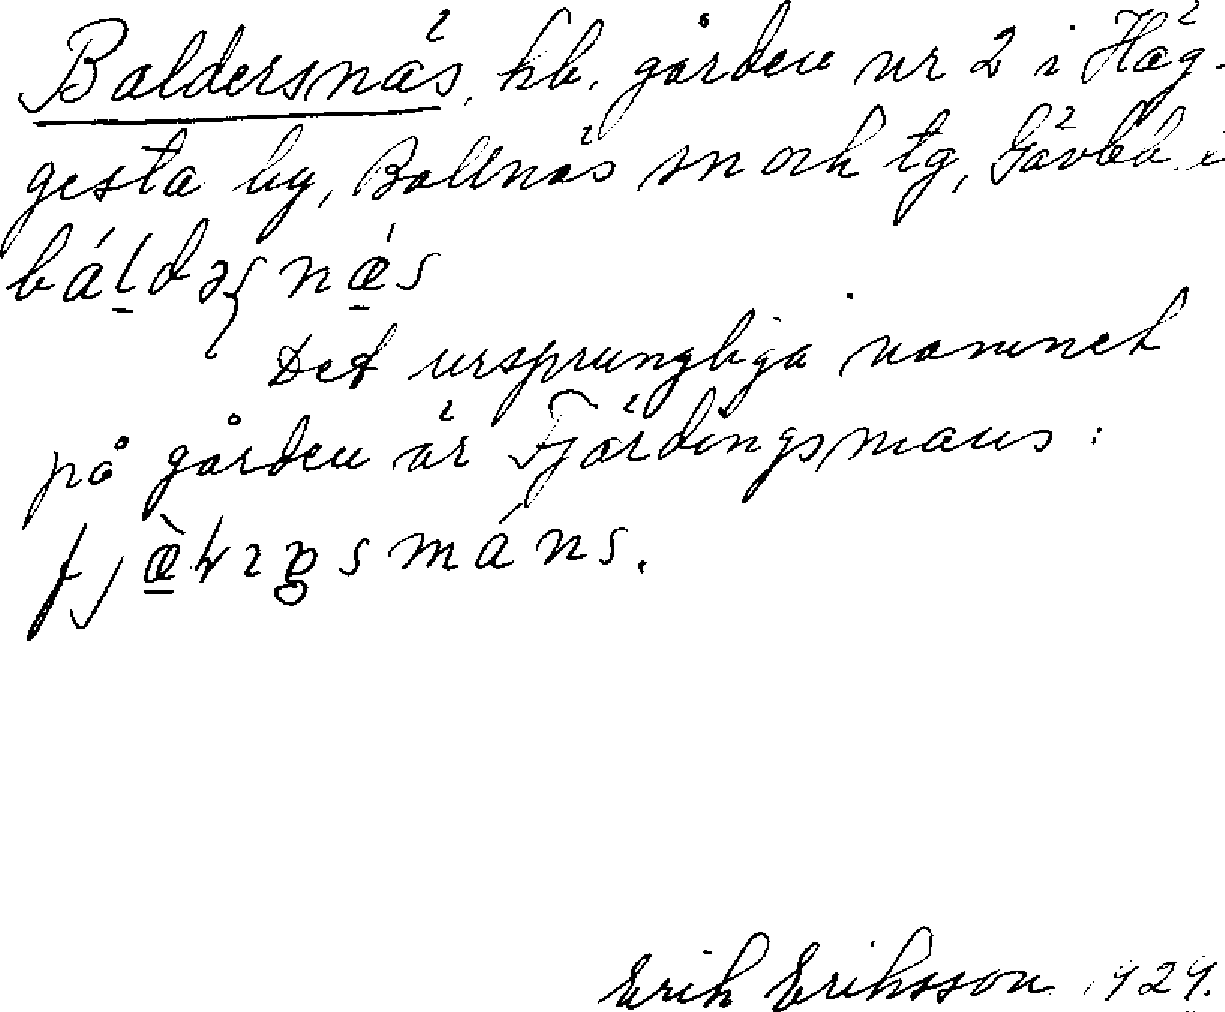 Baldersnäs, hb. gården nr 2 i Häg-
gesta by, Bollnäs sn och tg, Gävleb.
báldəṣnæ̲s
Det ursprungliga namnet
på gården är Fjärdingsmans:
fjæ̲̀ smáns.
Erik Eriksson 1929.